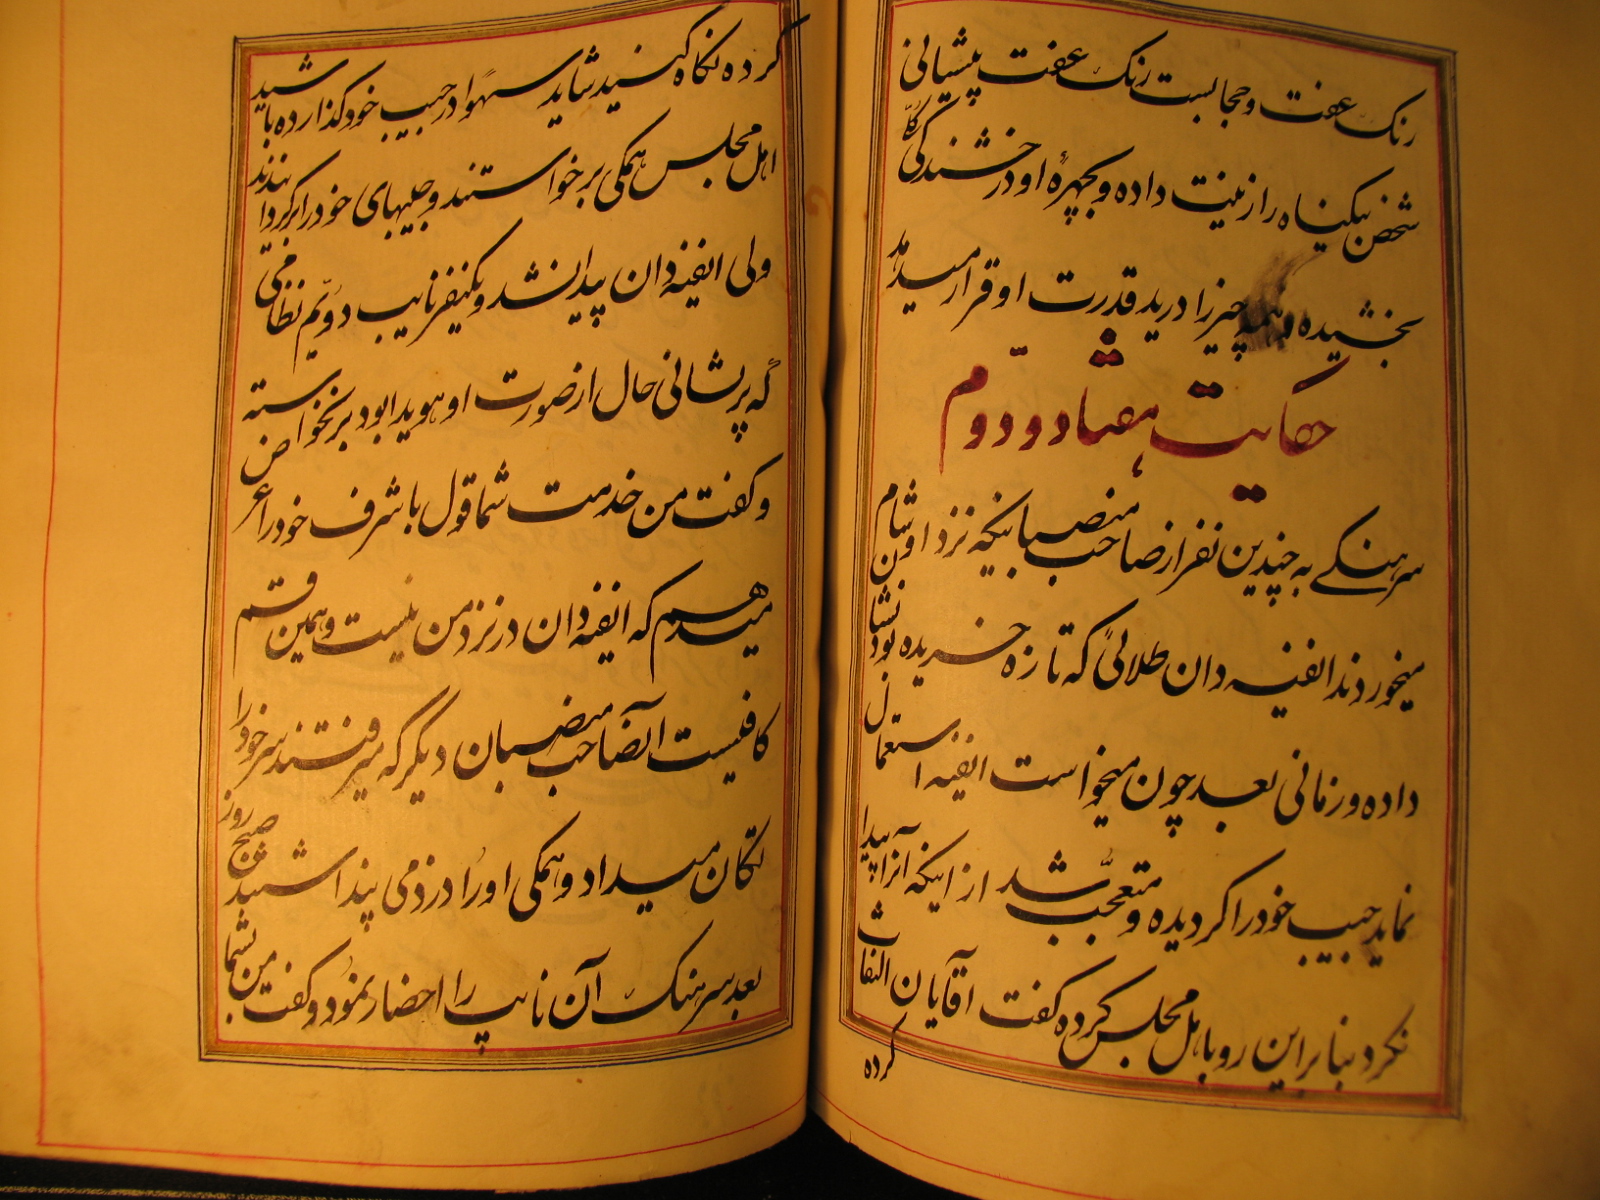 رنک عفت و حجابست رنک عفت پیشیانی
شخص بیکیناه را زینت داده و بچهرهٔ او درخشندکی کلّا
بخشیده و همه چیز را درید قدرت او قرار میداند
حکایت هفتاد و دوّم
سرهنکے به چندین نفر از صاحب منصبانیکه نزد او شام
میخوردند انفیه دان طلائی که تازه خریده بود نشان
داده و زمانی بعد چون میخواست انفیه استعمال
نماید جیب خود را کردیده و متعجّب شد از اینکه آنرا پیدا
نکرد بنابراین رو باهل مجلس کرده کفت آقایان التفات
کرده
کرده نکاه کنید شاید سهوًا در جیب خود کذارده باشید
اهل مجلس همکی برخواستند و جیبهای خود را برکرداندند
ولی انفیه دان پیدا نشد و یکنفر نایب دویّم نظامی
که پریشانی حال از صورت او هویدا بود برنخواسته
و کفت من خدمت شما قول با شرف خود را عرض
میدهم که انفیه دان در نزد من نیست و همین قسم
کافیست آنصاحب منصبان دیکر که میرفتند سر خود را
تکان میداد و همکی او را دزد می پنداشتید صبح روز
بعد سرهنک آن نایب را احضار نمود و کفت من بشما